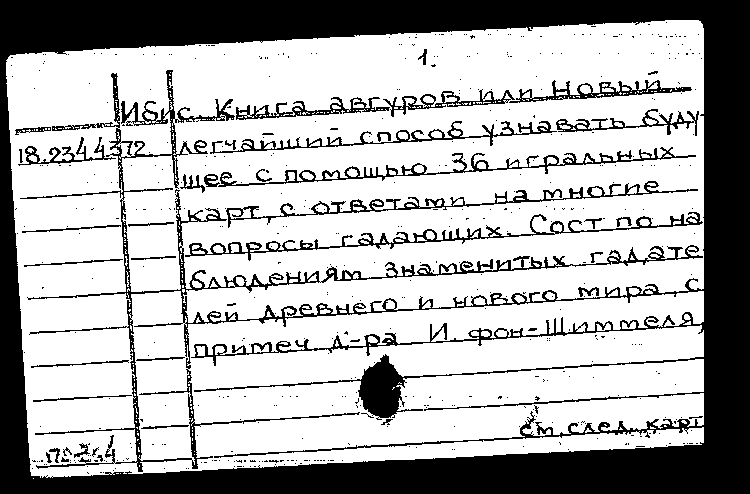 1.
Ибис. Книга авгуров или Новый
18.234.4.372. легчайший способ узнавать буду-
щее с помощью 36 игральных
карт, с ответами на многие
вопросы гадающих. Сост по на
блюдениям знаменитых гадате
лей древнего и нового мира, с
примеч. д-ра И. фон-Шиммеля,
см. след. карт